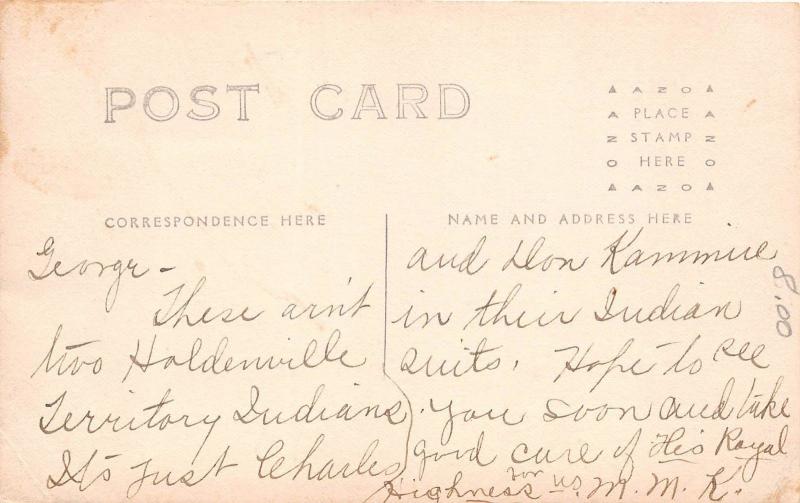 POST CARD
▲ A Z O ▲
A PLACE A
Z STAMP Z
O HERE O
▲ A Z O ▲
CORRESPONDENCE HERE
NAME AND ADDRESS HERE
George -
These ain't
two Holdenville
Territory Indians.
It's just Charles
and Don Kammire
in their Indian
suits. Hope to see
you soon and take
good care of His Royal
Highness for us. M. M. K.
8.00